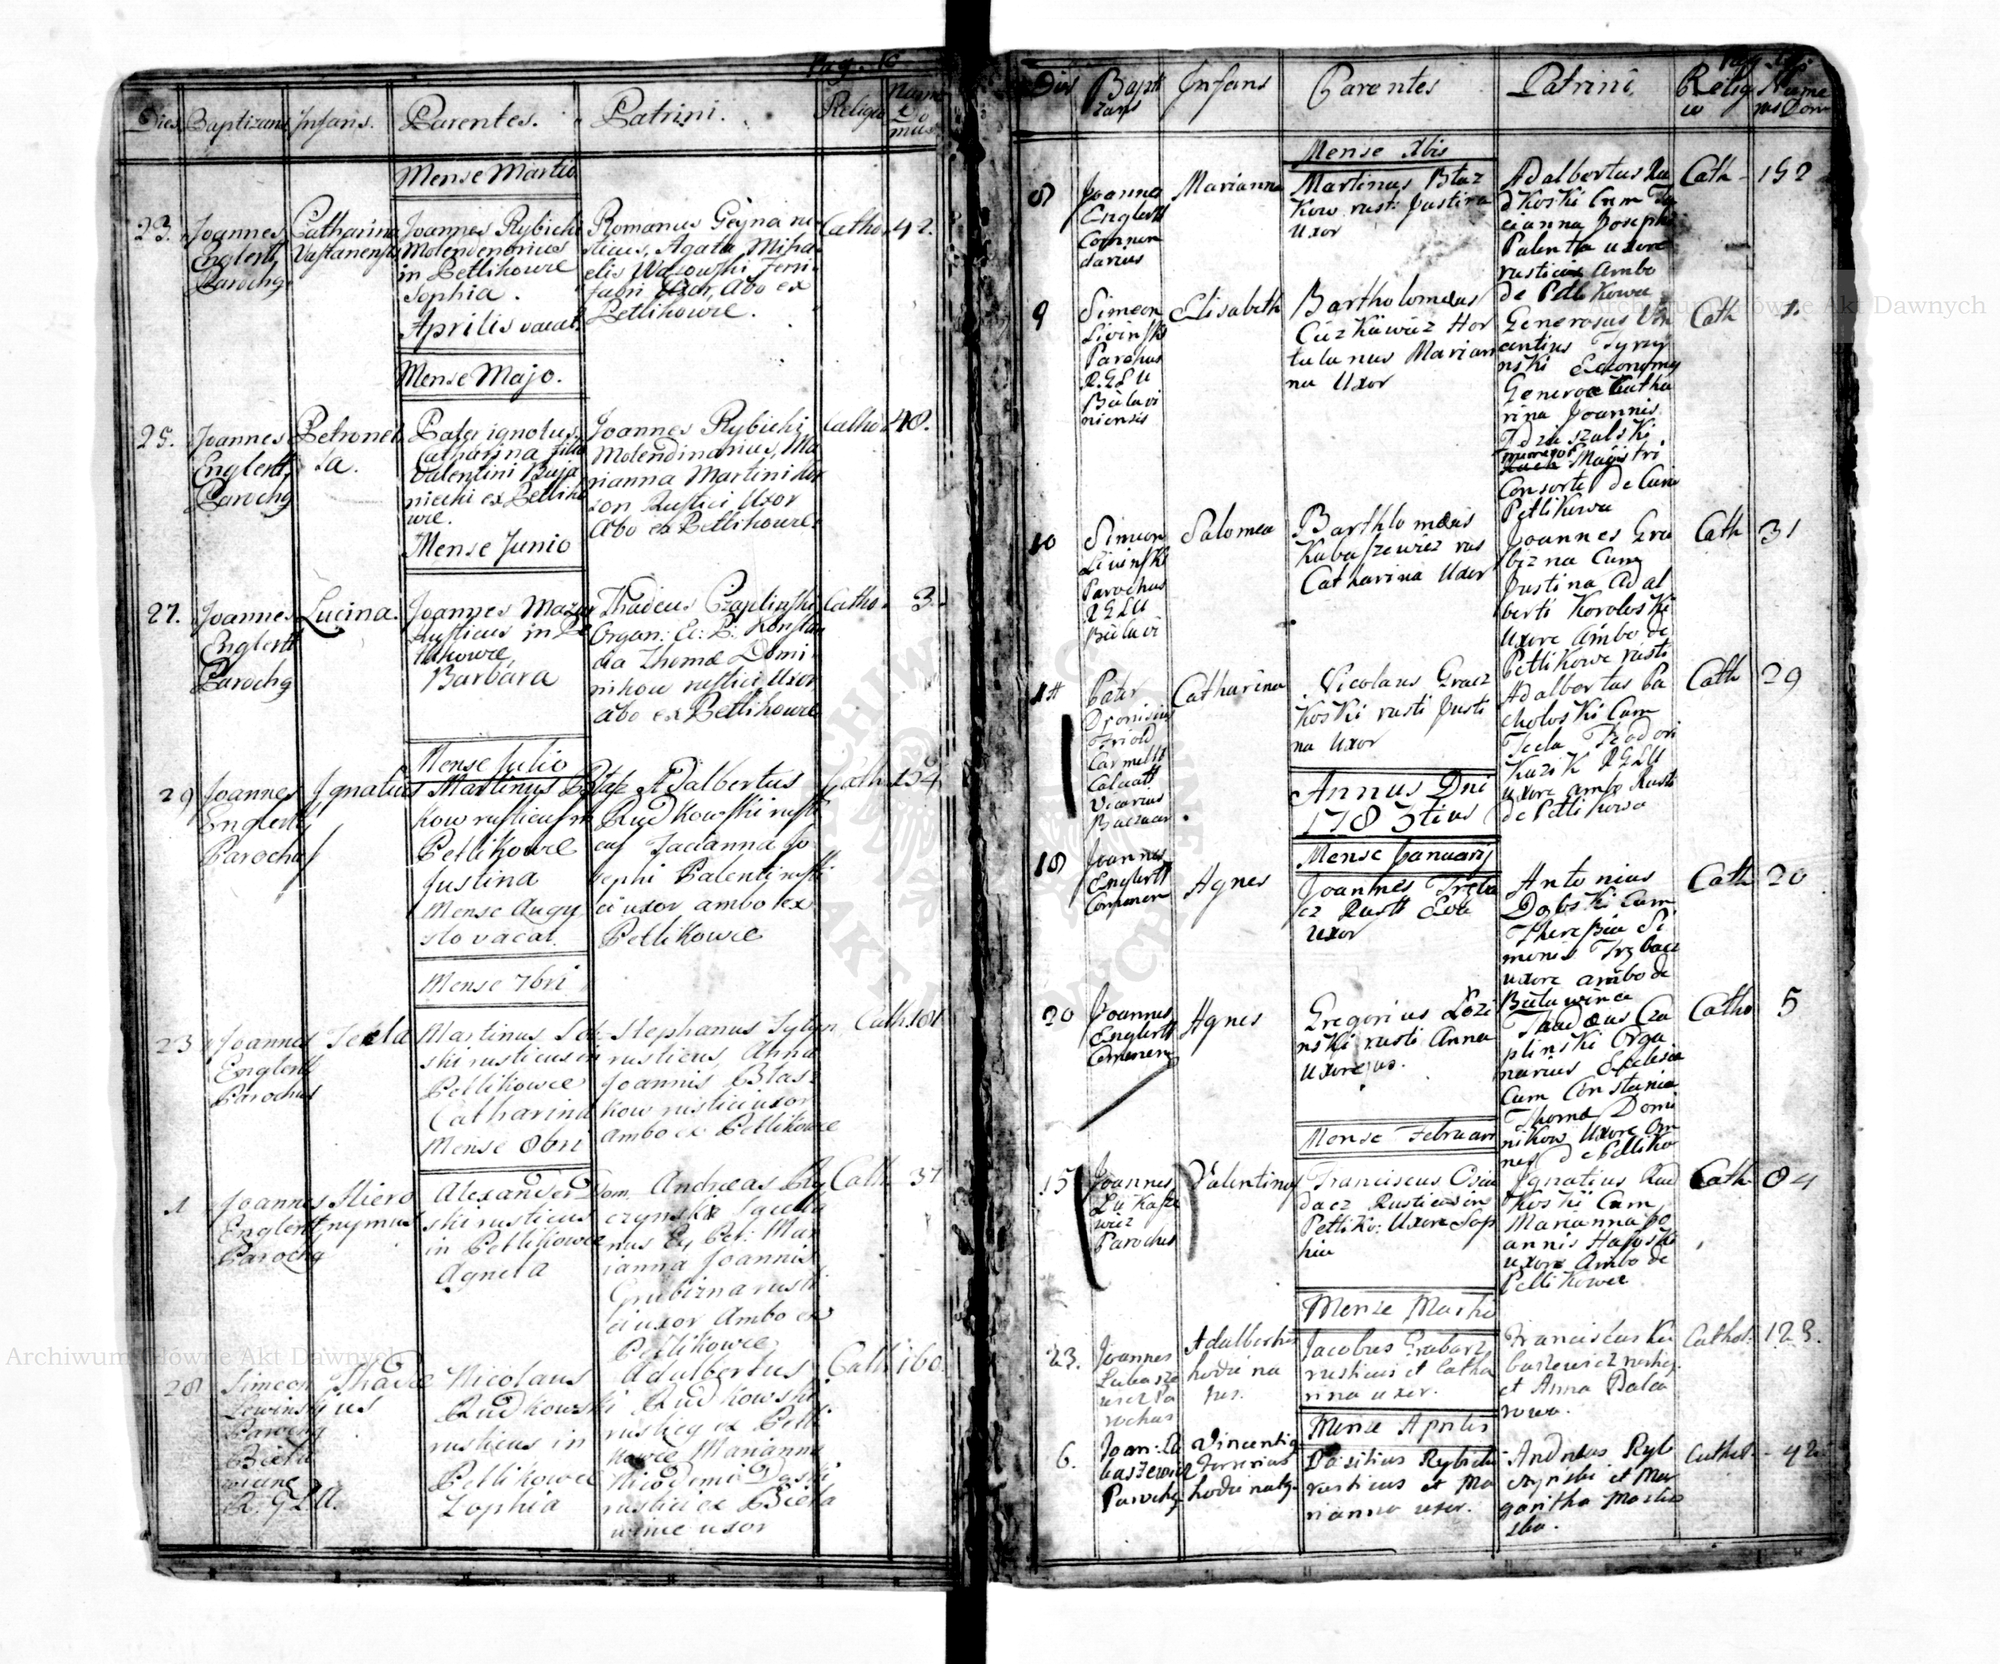 Dies Baptizans Infans. Parentes. Patrini. Religio Nume Do mus
Mense Martio
23. Joannes Englertt Parochg
Catharina
Joannes Rybicki
Molendinarius
in Petlikowce
Sophia.
Aprilis vacat
Romanus Gryna ru
sticus, Agata Micha
elis
fabri Uxor, Abo ex
Petlikowce.
Catho. 42.
Mense Majo.
25. Joannes Englertt Parochg
Petronel
la.
Pater ignotus,
Catharina filia
Valentini Buja
niecki ex Petliko
wce.
Joannes Rybicki
Molendinarius, Ma
rianna Martini
Rustici Uxor
Abo ex Petlikowce.
Catho. 48.
Mense Junio
27. Joannes Englertt Parochg
Lucina.
Joannes Mazur
Rusticus in Pe
tlikowce
Barbara
Thadeus Czaplinski
Organ: Ec: P: Konstan
cia Thomæ Domi
nikow rustici Uxor
abo ex Petlikowce
Catho. 3.
Mense Julio
29 Joannes Englertt Parochus
Ignatius
Martinus Błaz
kow rusticus in
Petlikowce
Justina
Mense Augu
sto vacat.
Adalbertus
Rudkowski rusti
cus Tacianna Jo
sephi Palenti rusti
ci uxor ambo ex
Petlikowce
Cath. 154
Mense 7bri
23 Joannes Englertt Parochus
Tecla
Martinus
ski rusticus in
Petlikowce
Catharina
Mense 8bri
Stephanus
rusticus, Anna
Joannis Błas
kow rustici uxor
ambo ex Petlikowce
Cath. 101
1 Joannes Englertt Parochg
Hiero
nymus
Alexander Dom
ski rusticus
in Petlikowce
Agneta
Andreas Ry
czynski
nus Ex Pet: Mar
ianna Joannis
Grubizna rusti
ci uxor Ambo ex
Petlikowce
Cath. 37
28 Simeon Lewinski Parochg
R. G. L. U.
Thadæ
us
Nicolaus
Rudkowski
rusticus in
Petlikowce
Zophia
Adalbertus
Rudkowski
rusticg ex Petli
kowce Marianna
Nicodemi Daski
rustici ex Biela
wince uxor
Cath. 160.
Dies Bapti zans Infans Parentes Patrini Religio Nume rus Dom
Mense Xbris
8 Joannes Englertt Commen darius
Marianna
Martinus Błaz
kow rusti Justina
Uxor
Adalbertus Ru
dkoski Cum Ta
cianna Josephi
Palenta uxore
rustici Ambo
de Petlikowce
Cath 152
9 Simeon Livinski Parohus R G L U Bielavi niensis
Elisabeth
Bartholomeus
Ciezkiewicz Hor
tulanus Marian
na Uxor
Generosus Vin
centius Tyrzy
nski Economg
Generosa Catha
rina Joannis
Magistri
Consorte de Curia
Petlikowce
Cath 1.
10 Simeon Livinski Parochus R G L U Bielavi
Salomea
Barthlomeus
Kubaszewicz rus
Catharina Uxor
Joannes Gru
bizna Cum
Justina Adal
berti Koroloski
Uxore Ambo de
Petlikowce rusti
Cath 31
14 Pater Dronisius Carmelit Calceatt Vicarius
Catharina
Nicolaus Gracz
koski rusti Justi
na Uxor
Adalbertus Pa
choloski Cum
Tecla Teodori
Kuzik R G L U
uxore ambo Rusti
de Petlikowce
Cath 29
Annus Dni
1785 tius
Mense Januarij
18 Joannes Englertt Commen
Agnes
Joannes Tręba
cz Rustt Eva
Uxor
Antonius
Doboski Cum
Theressia Si
monis Trębacz
uxore ambo de
Bielawince
Cath 20
20 Joannes Englertt Commen
Agnes
Gregorius Łozi
nski rusti Anna
Uxore jus.
Thadeus Cza
plinski Orga
narius Eclesiæ
Cum Constancia
Thomæ Domi
nikow Uxore Om
nes de Petliko
Catho 5
Mense Februari
15 Joannes Lukasze wicz Parochus
Valentinus
Franciscus Osia
dacz Rusticus in
Petliko: Uxore Sop
hia
Ignatius Rud
koski Cum
Marianna Jo
annis
uxore Ambo de
Petlikowce
Cath 84
Mense Martii
23. Joannes Lukasze wicz Pa rochus
Adalbertus
hodie na
tus.
Jacobus Grabarz
rusticus et Catha
rina uxor.
Franciscus Ku
baszewicz rusticg.
et Anna Pala
rowa.
Cathol. 123.
Mense Aprilis
6. Joan: Lu kaszewicz Parochg
Vincentig
Ferrerius
hodie natg.
Basilius Rybicki
rusticus et Ma
rianna uxor.
Andreas Ryb
czynski et Mar
garitha Masło
ska.
Cathol. 42
Archiwum Główne Akt Dawnych
Archiwum Główne Akt Dawnych